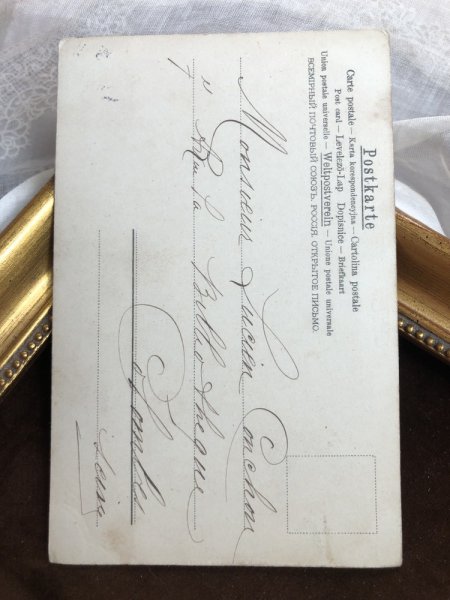 Postkarte
Carte postale — Karta korespondencyjna — Cartolina postale
Post card — Levelező-Lap Dopisnice — Briefkaart
Union postale universelle — Weltpostverein — Unione postale universale
ВСЕМІРНЫЙ ПОЧТОВЫЙ СОЮЗЪ. РОССІЯ. ОТКРЫТОЕ ПИСЬМО.
Monsieur Lucien
Rue La Bibliotheque